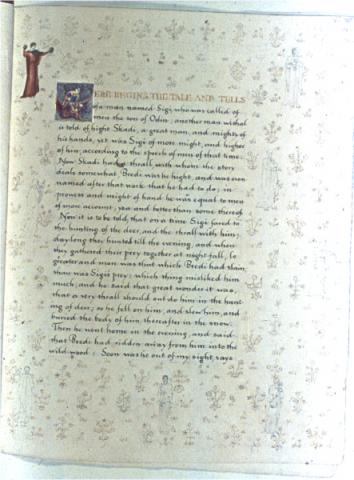 HERE BEGINS THE TALE AND TELLS
of a man named Sigi, who was called of
men the son of Odin; another man withal
is told of hight Skadi, a great man, and mighty of
his hands, yet was Sigi of more might, and higher
of kin, according to the speech of men of that time.
Now Skadi had a thrall, with whom the story
deals somewhat, Bredi was he hight, and was even
named after that work that he had to do; in
prowess and might of hand he was equal to men
of more account, yea and better than some thereof
Now it is to be told, that on a time Sigi fared to
the hunting of the deer, and the thrall with him;
daylong they hunted till the evening, and when
they gathered their prey together at night-fall, lo
greater and more was that which Bredi had slain
than was Sigi's prey; which thing misliked him
much; and he said that great wonder it was,
that a very thrall should out do him in the hunt-
ing of deer; so he fell on him, and slew him, and
buried the body of him thereafter in the snow.
Then he went home in the evening, and said
that Bredi had ridden away from him into the
wild-wood; Soon was he out of my sight, says